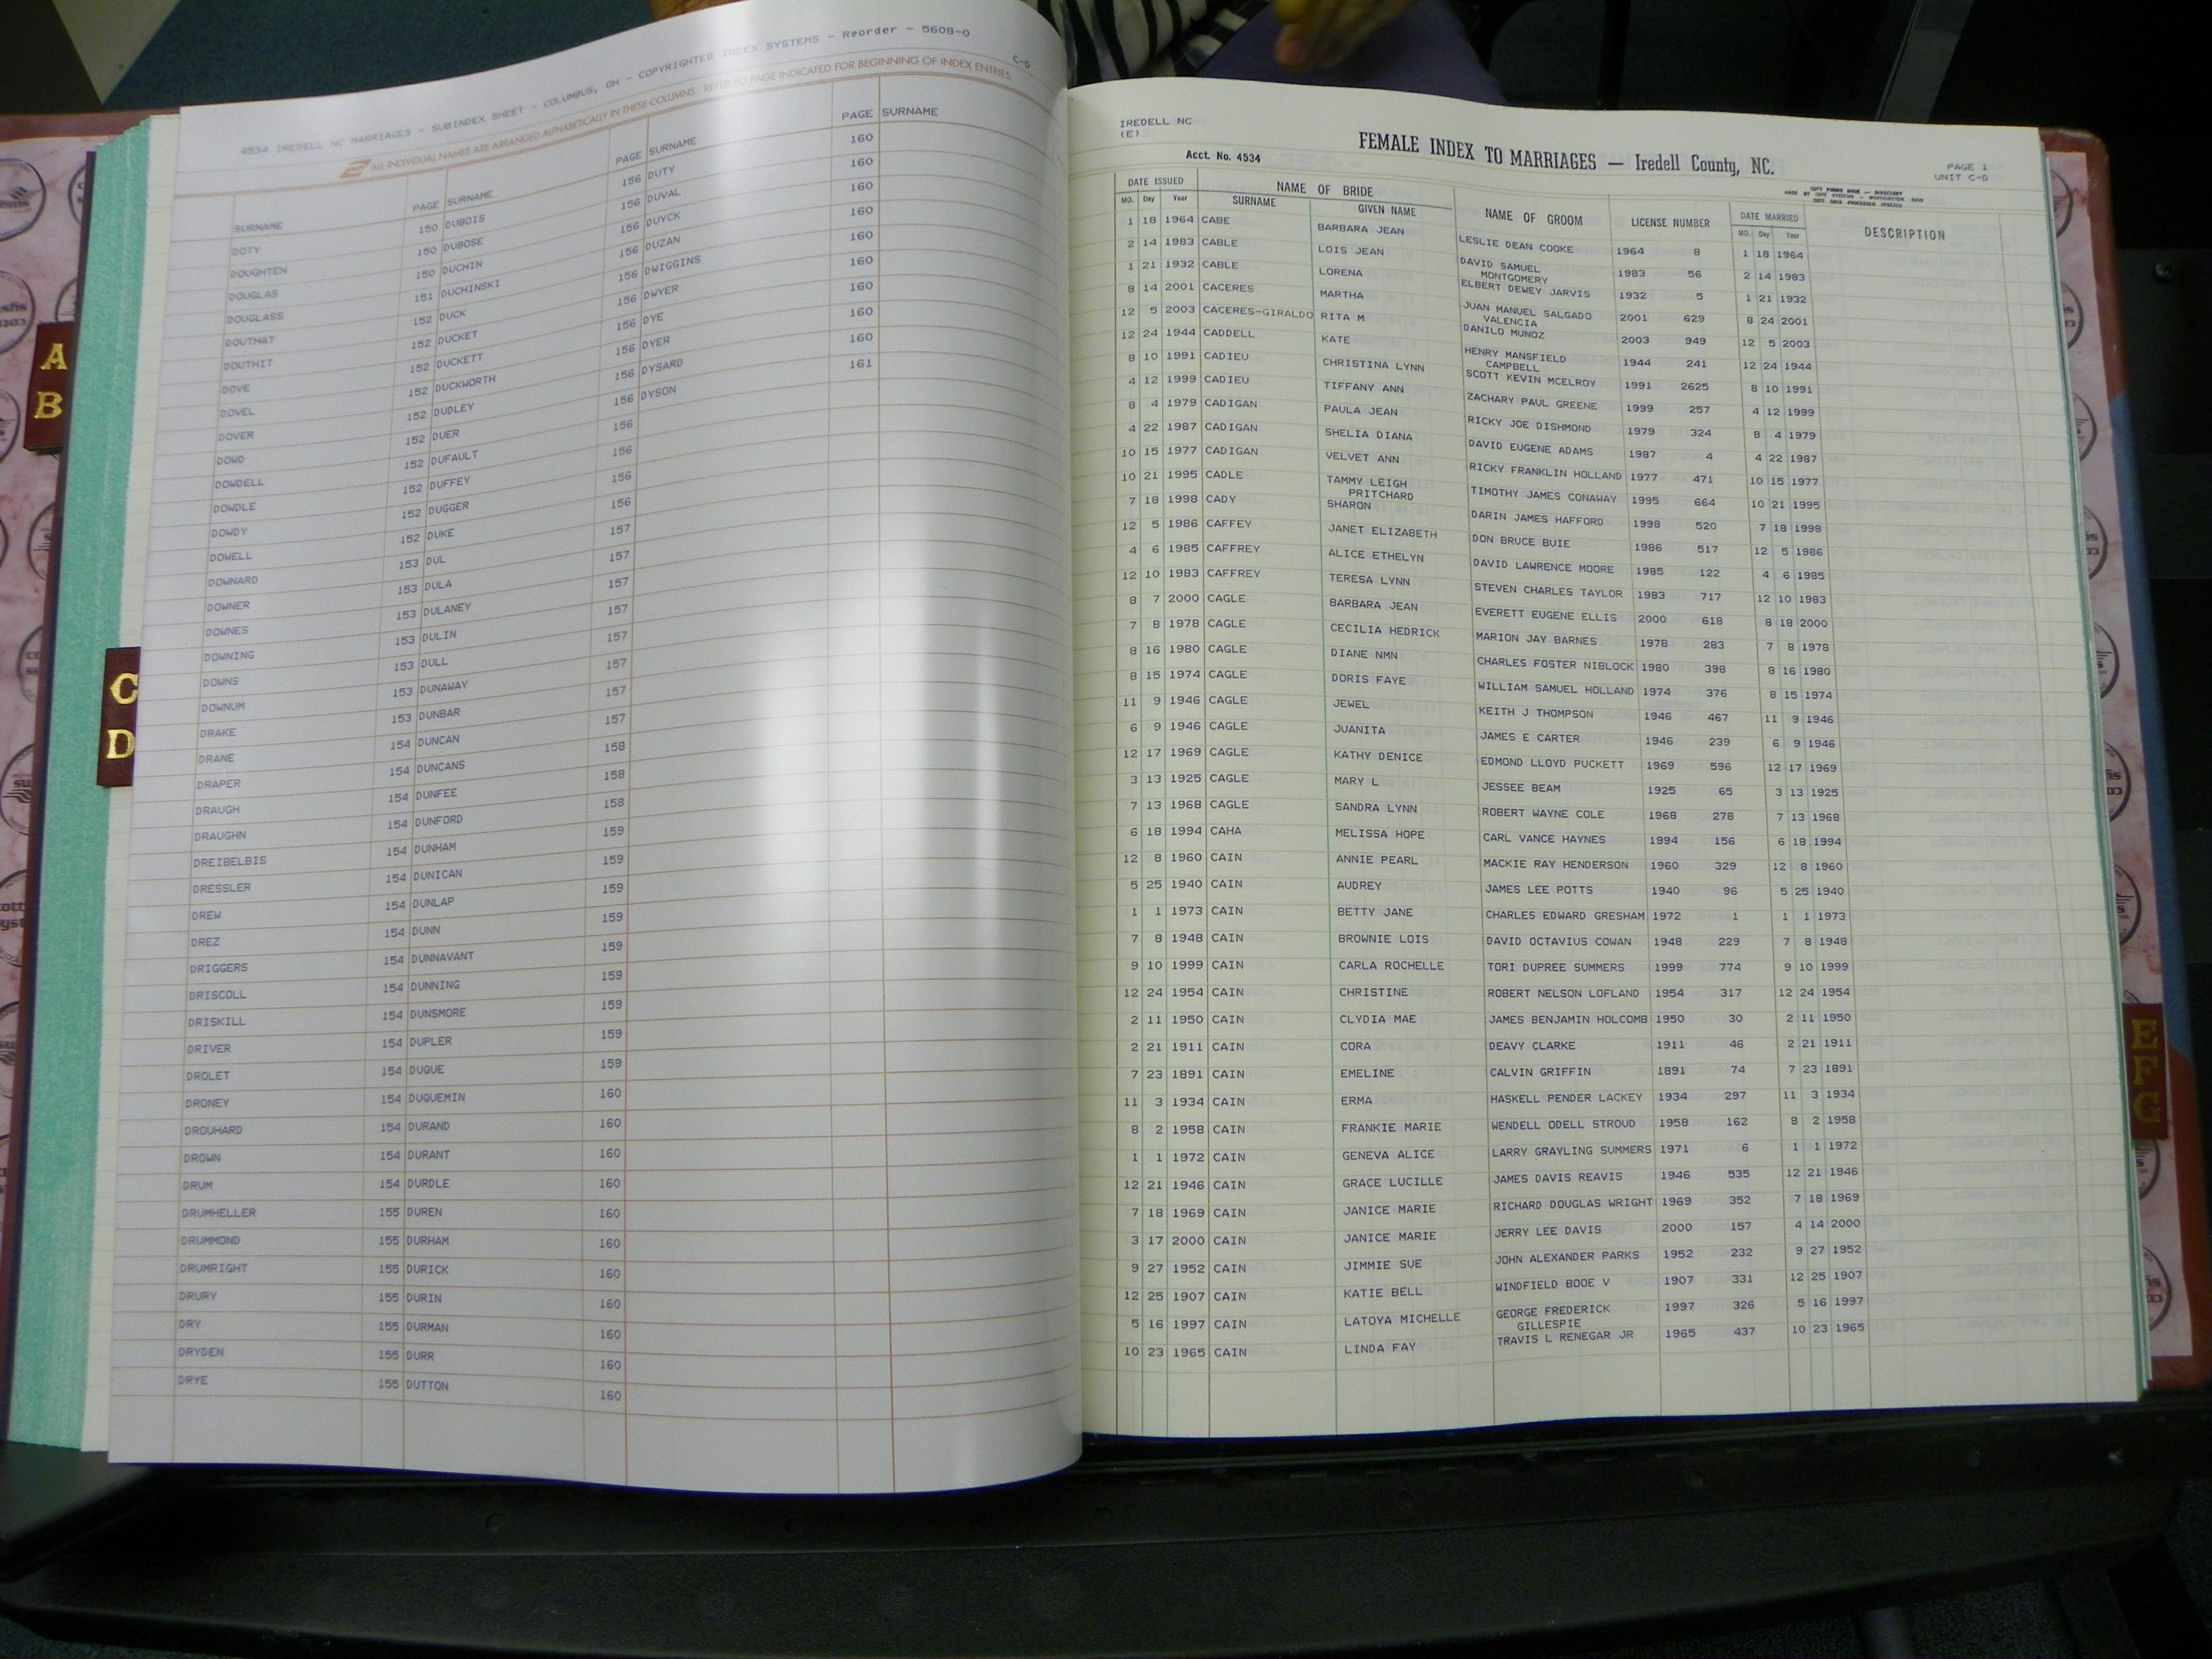 4534 IREDELL NC MARRIAGES - SUBINDEX SHEET - COLUMBUS, OH - COPYRIGHTED INDEX SYSTEMS - Reorder - 5608-0
C-D
ALL INDIVIDUAL NAMES ARE ARRANGED ALPHABETICALLY IN THESE COLUMNS. REFER TO PAGE INDICATED FOR BEGINNING OF INDEX ENTRIES.
SURNAME PAGE SURNAME PAGE SURNAME PAGE SURNAME
DOTY 150 DUBOIS 156 DUTY 160
DOUGHTEN 150 DUBOSE 156 DUVAL 160
DOUGLAS 150 DUCHIN 156 DUYCK 160
DOUGLASS 151 DUCHINSKI 156 DUZAN 160
DOUTHAT 152 DUCK 156 DWIGGINS 160
DOUTHIT 152 DUCKET 156 DWYER 160
DOVE 152 DUCKETT 156 DYE 160
DOVEL 152 DUCKWORTH 156 DYER 160
DOVER 152 DUDLEY 156 DYSARD 160
DOWD 152 DUER 156 DYSON 161
DOWDELL 152 DUFAULT 156
DOWDLE 152 DUFFEY 156
DOWDY 152 DUGGER 156
DOWELL 152 DUKE 156
DOWNARD 153 DUL 157
DOWNER 153 DULA 157
DOWNES 153 DULANEY 157
DOWNING 153 DULIN 157
DOWNS 153 DULL 157
DOWNUM 153 DUNAWAY 157
DRAKE 153 DUNBAR 157
DRANE 154 DUNCAN 157
DRAPER 154 DUNCANS 158
DRAUGH 154 DUNFEE 158
DRAUGHN 154 DUNFORD 158
DREIBELBIS 154 DUNHAM 159
DRESSLER 154 DUNICAN 159
DREW 154 DUNLAP 159
DREZ 154 DUNN 159
DRIGGERS 154 DUNNAVANT 159
DRISCOLL 154 DUNNING 159
DRISKILL 154 DUNSMORE 159
DRIVER 154 DUPLER 159
DROLET 154 DUQUE 159
DRONEY 154 DUQUEMIN 160
DROUHARD 154 DURAND 160
DROWN 154 DURANT 160
DRUM 154 DURDLE 160
DRUMHELLER 155 DUREN 160
DRUMMOND 155 DURHAM 160
DRUMRIGHT 155 DURICK 160
DRURY 155 DURIN 160
DRY 155 DURMAN 160
DRYDEN 155 DURR 160
DRYE 155 DUTTON 160
A
B
C
D
IREDELL NC
(E)
Acct. No. 4534
FEMALE INDEX TO MARRIAGES — Iredell County, NC.
PAGE 1
UNIT C-D
DATE ISSUED NAME OF BRIDE NAME OF GROOM LICENSE NUMBER DATE MARRIED DESCRIPTION
MO. Day Year SURNAME GIVEN NAME MO. Day Year
1 18 1964 CABE BARBARA JEAN LESLIE DEAN COOKE 1964 8 1 18 1964
2 14 1983 CABLE LOIS JEAN DAVID SAMUEL MONTGOMERY 1983 56 2 14 1983
1 21 1932 CABLE LORENA ELBERT DEWEY JARVIS 1932 5 1 21 1932
8 14 2001 CACERES MARTHA JUAN MANUEL SALGADO VALENCIA 2001 629 8 24 2001
12 5 2003 CACERES-GIRALDO RITA M DANILO MUNOZ 2003 949 12 5 2003
12 24 1944 CADDELL KATE HENRY MANSFIELD CAMPBELL 1944 241 12 24 1944
8 10 1991 CADIEU CHRISTINA LYNN SCOTT KEVIN MCELROY 1991 2625 8 10 1991
4 12 1999 CADIEU TIFFANY ANN ZACHARY PAUL GREENE 1999 257 4 12 1999
8 4 1979 CADIGAN PAULA JEAN RICKY JOE DISHMOND 1979 324 8 4 1979
4 22 1987 CADIGAN SHELIA DIANA DAVID EUGENE ADAMS 1987 4 4 22 1987
10 15 1977 CADIGAN VELVET ANN RICKY FRANKLIN HOLLAND 1977 471 10 15 1977
10 21 1995 CADLE TAMMY LEIGH PRITCHARD TIMOTHY JAMES CONAWAY 1995 664 10 21 1995
7 18 1998 CADY SHARON DARIN JAMES HAFFORD 1998 520 7 18 1998
12 5 1986 CAFFEY JANET ELIZABETH DON BRUCE BUIE 1986 517 12 5 1986
4 6 1985 CAFFREY ALICE ETHELYN DAVID LAWRENCE MOORE 1985 122 4 6 1985
12 10 1983 CAFFREY TERESA LYNN STEVEN CHARLES TAYLOR 1983 717 12 10 1983
8 7 2000 CAGLE BARBARA JEAN EVERETT EUGENE ELLIS 2000 618 8 18 2000
7 8 1978 CAGLE CECILIA HEDRICK MARION JAY BARNES 1978 283 7 8 1978
8 16 1980 CAGLE DIANE NMN CHARLES FOSTER NIBLOCK 1980 398 8 16 1980
8 15 1974 CAGLE DORIS FAYE WILLIAM SAMUEL HOLLAND 1974 376 8 15 1974
11 9 1946 CAGLE JEWEL KEITH J THOMPSON 1946 467 11 9 1946
6 9 1946 CAGLE JUANITA JAMES E CARTER 1946 239 6 9 1946
12 17 1969 CAGLE KATHY DENICE EDMOND LLOYD PUCKETT 1969 596 12 17 1969
3 13 1925 CAGLE MARY L JESSEE BEAM 1925 65 3 13 1925
7 13 1968 CAGLE SANDRA LYNN ROBERT WAYNE COLE 1968 278 7 13 1968
6 18 1994 CAHA MELISSA HOPE CARL VANCE HAYNES 1994 156 6 18 1994
12 8 1960 CAIN ANNIE PEARL MACKIE RAY HENDERSON 1960 329 12 8 1960
5 25 1940 CAIN AUDREY JAMES LEE POTTS 1940 96 5 25 1940
1 1 1973 CAIN BETTY JANE CHARLES EDWARD GRESHAM 1972 1 1 1 1973
7 8 1948 CAIN BROWNIE LOIS DAVID OCTAVIUS COWAN 1948 229 7 8 1948
9 10 1999 CAIN CARLA ROCHELLE TORI DUPREE SUMMERS 1999 774 9 10 1999
12 24 1954 CAIN CHRISTINE ROBERT NELSON LOFLAND 1954 317 12 24 1954
2 11 1950 CAIN CLYDIA MAE JAMES BENJAMIN HOLCOMB 1950 30 2 11 1950
2 21 1911 CAIN CORA DEAVY CLARKE 1911 46 2 21 1911
7 23 1891 CAIN EMELINE CALVIN GRIFFIN 1891 74 7 23 1891
11 3 1934 CAIN ERMA HASKELL PENDER LACKEY 1934 297 11 3 1934
8 2 1958 CAIN FRANKIE MARIE WENDELL ODELL STROUD 1958 162 8 2 1958
1 1 1972 CAIN GENEVA ALICE LARRY GRAYLING SUMMERS 1971 6 1 1 1972
12 21 1946 CAIN GRACE LUCILLE JAMES DAVIS REAVIS 1946 535 12 21 1946
7 18 1969 CAIN JANICE MARIE RICHARD DOUGLAS WRIGHT 1969 352 7 18 1969
3 17 2000 CAIN JANICE MARIE JERRY LEE DAVIS 2000 157 4 14 2000
9 27 1952 CAIN JIMMIE SUE JOHN ALEXANDER PARKS 1952 232 9 27 1952
12 25 1907 CAIN KATIE BELL WINDFIELD BOOE V 1907 331 12 25 1907
5 16 1997 CAIN LATOYA MICHELLE GEORGE FREDERICK GILLESPIE 1997 326 5 16 1997
10 23 1965 CAIN LINDA FAY TRAVIS L RENEGAR JR 1965 437 10 23 1965
E
F
G